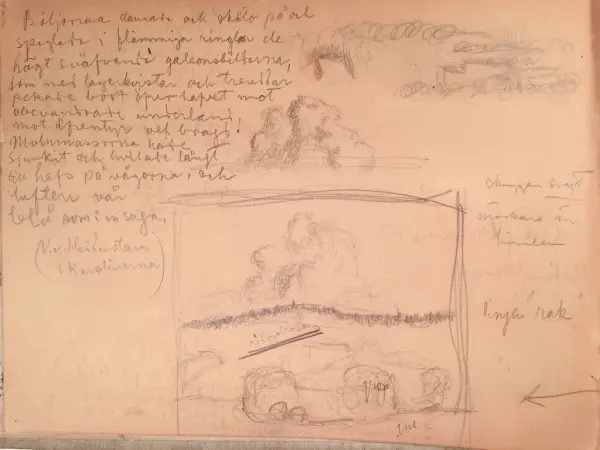 Böljorna dansade och sköto på och
speglade i flammiga ringlar de
högt sväfvande galeonsbilderna,
som med lagerkvistar och treuddar
pekade bort öfver hafvet mot
obevandrade underland,
mot äfventyr och bragd!
Molnmassorna hade
sjunkit och hvilade långt
till hafs på vågorna, och
luften var
blå som i en saga.
(V. v. Heidenstam
i Karolinerna)
skuggan
mörkare än
himlen
linjen "rak"
gul